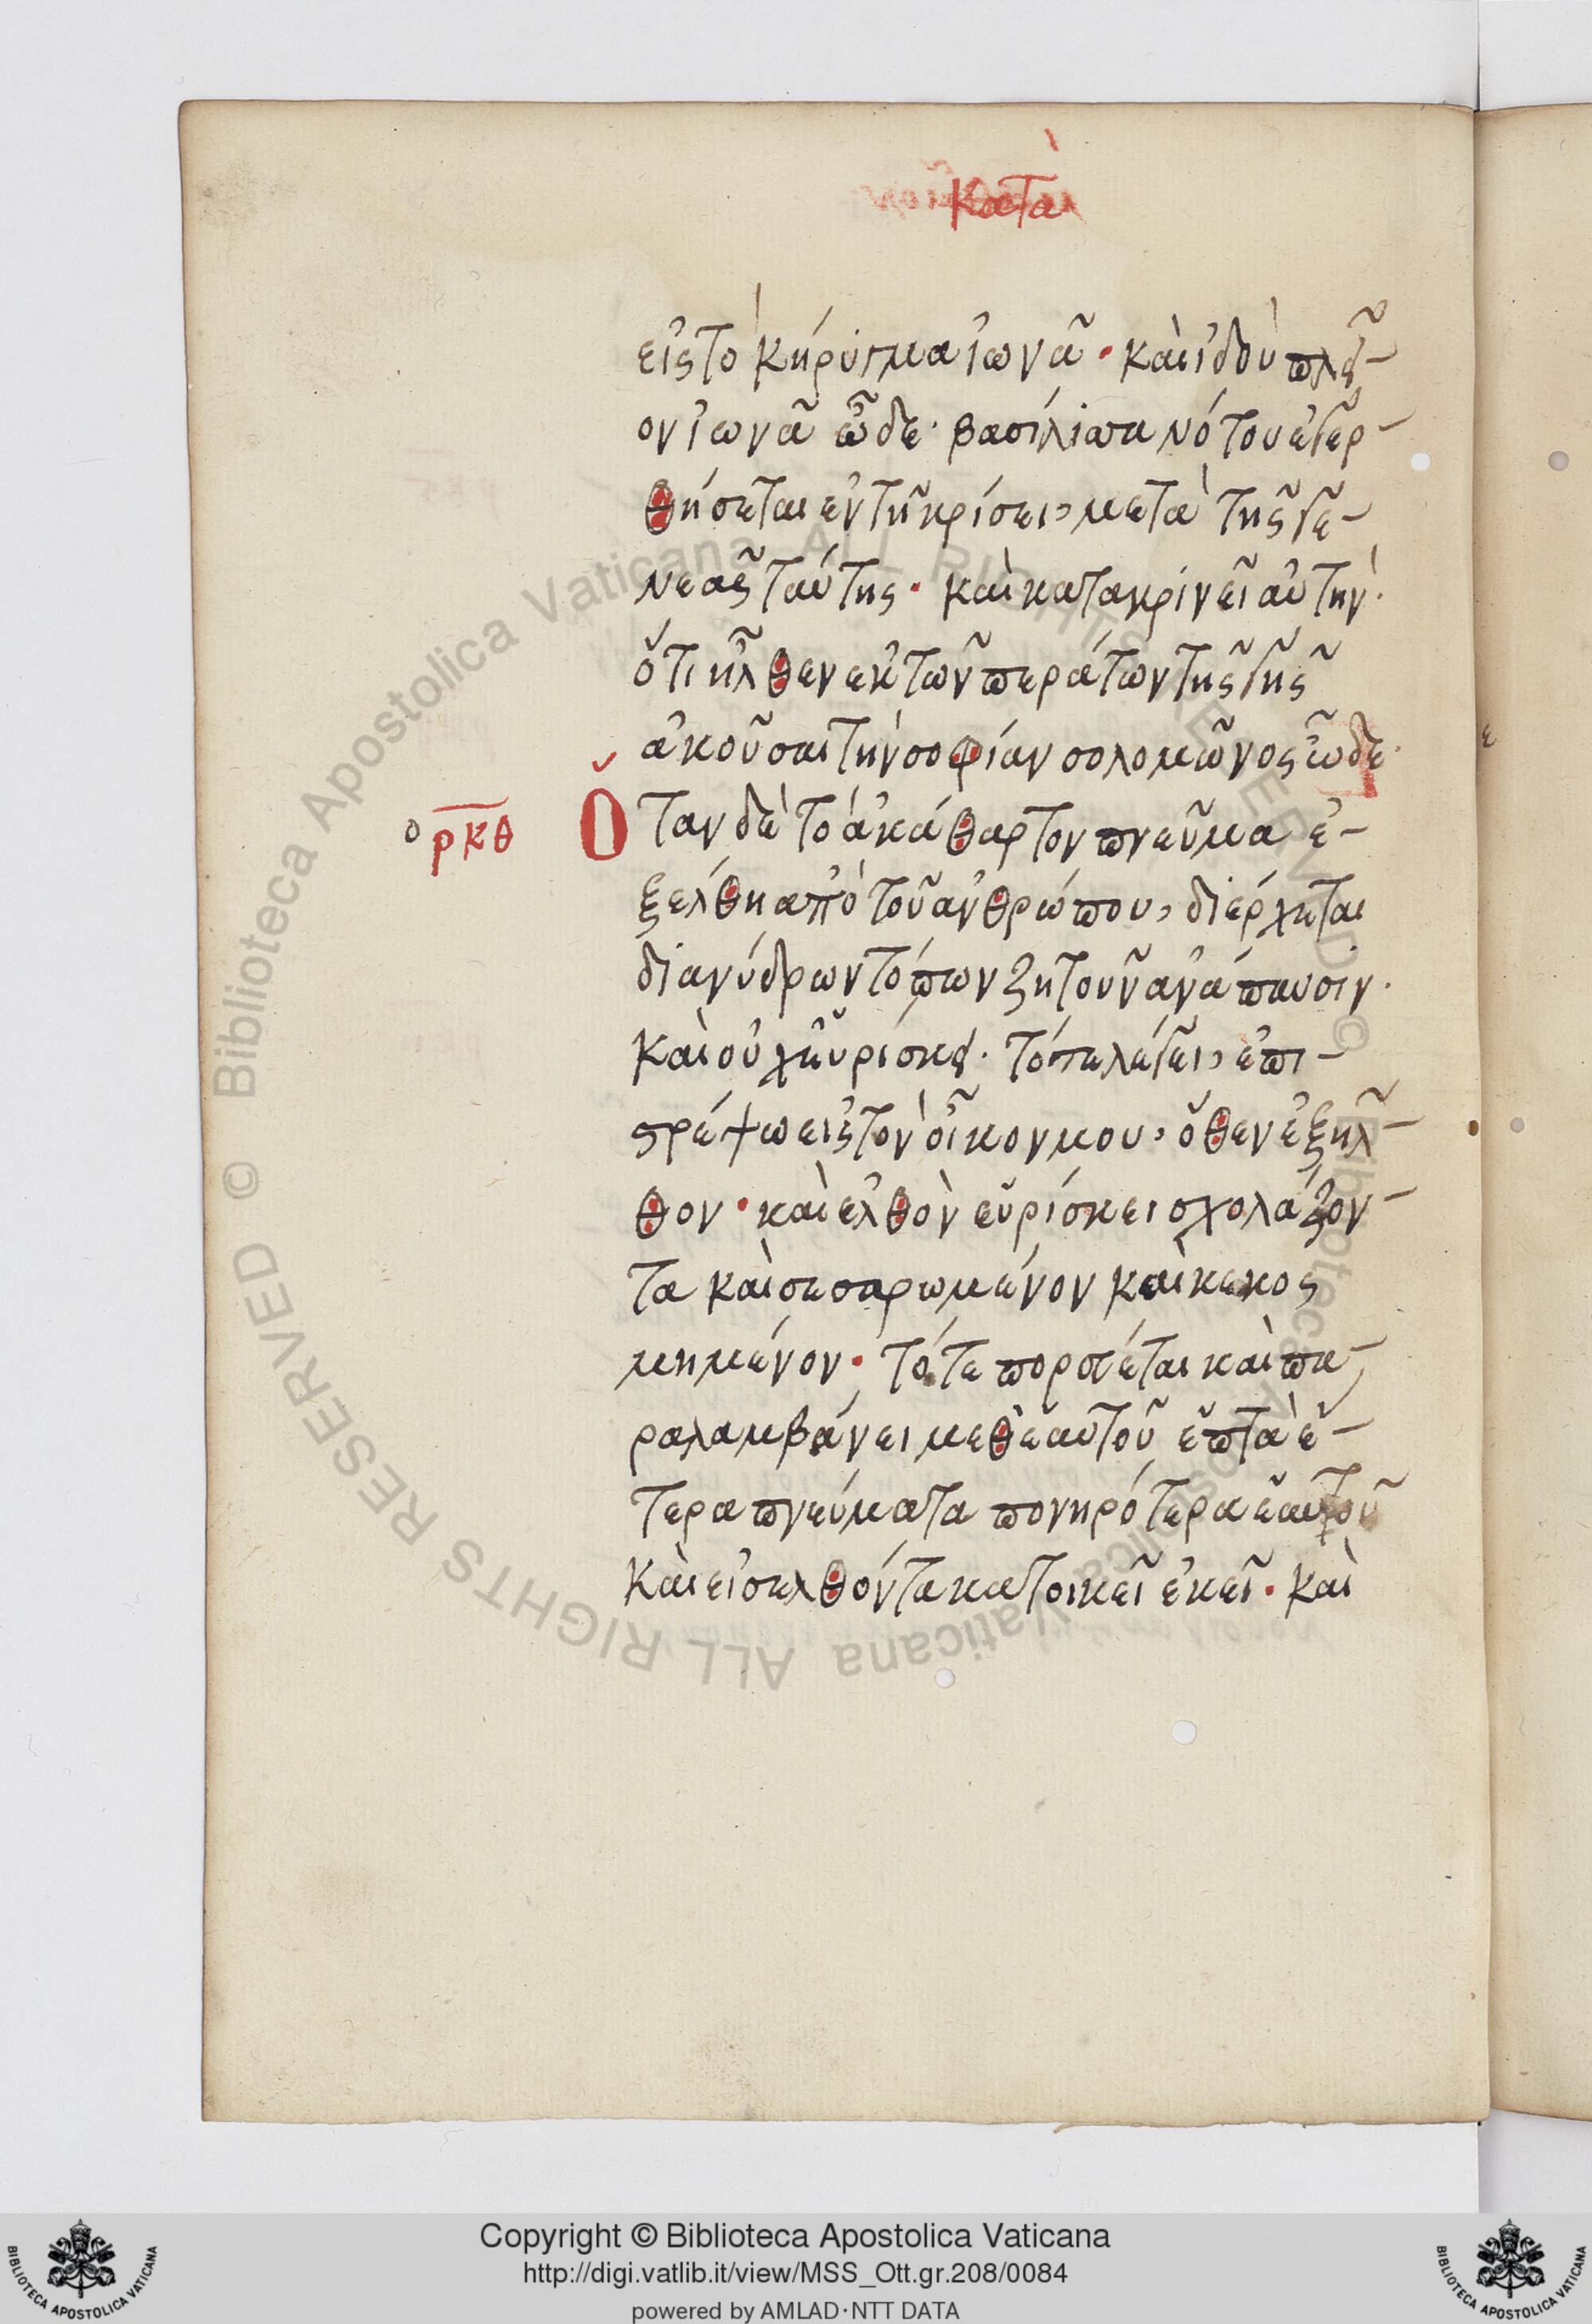 Κατὰ
εἰς τὸ κήρυγμα ἰωνᾶ · καὶ ἰδοὺ πλεῖ-
ον ἰωνᾶ ὧδε · βασίλισσα νότου ἐγερ-
θήσεται ἐν τῆ κρίσει, μετὰ τῆς γε-
νεᾶς ταύτης · καὶ κατακρίνει αὐτὴν ·
ὅτι ἦλθεν ἐκ τῶν περάτων τῆς γῆς
ἀκοῦσαι τὴν σοφίαν σολομῶνος ὧδε ·
ρκθ Ὅταν δὲ τὸ ἀκάθαρτον πνεῦμα ἐ-
ξέλθη ἀπὸ τοῦ ἀνθρώπου, διέρχεται
δι ανύδρων τόπων ζητοῦν ἀνάπαυσιν ·
καὶ οὐχ εὑρίσκει · τότε λέγει, ἐπι-
στρέψω εἰς τὸν οἶκον μου, ὅθεν ἐξῆλ-
θον · καὶ ἐλθὸν εὑρίσκει σχολάζον-
τα καὶ σεσαρωμένον καὶ κεκοσ
μημένον · τότε πορεύεται καὶ πα-
ραλαμβάνει μεθ ἑαυτοῦ ἑπτὰ ἕ-
τερα πνεύματα πονηρότερα ἑαυτοῦ
καὶ εἰσελθόντα κατοικεῖ ἐκεῖ · καὶ
© Biblioteca Apostolica Vaticana ALL RIGHTS RESERVED © Biblioteca Apostolica Vaticana ALL RIGHTS RESERVED
Copyright © Biblioteca Apostolica Vaticana
http://digi.vatlib.it/view/MSS_Ott.gr.208/0084
powered by AMLAD·NTT DATA
BIBLIOTECA APOSTOLICA VATICANA
BIBLIOTECA APOSTOLICA VATICANA